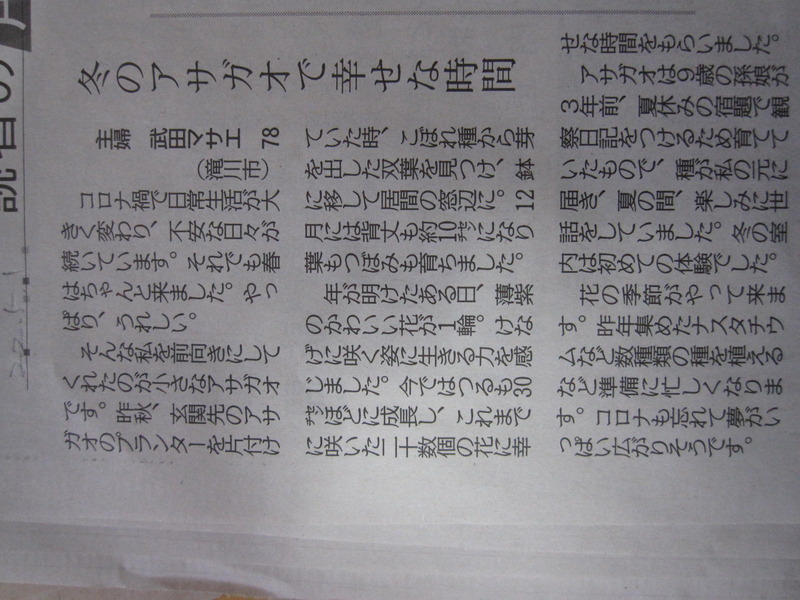 読者の
冬のアサガオで幸せな時間
主婦 武田マサエ 78
(滝川市)
コロナ禍で日常生活が大
きく変わり、不安な日々が
続いています。それでも春
はちゃんと来ました。やっ
ぱり、うれしい。
そんな私を前向きにして
くれたのが小さなアサガオ
です。昨秋、玄関先のアサ
ガオのプランターを片付け
ていた時、こぼれ種から芽
を出した双葉を見つけ、鉢
に移して居間の窓辺に。12
月には背丈も約10㌢になり
葉もつぼみも育ちました。
年が明けたある日、薄紫
のかわいい花が1輪。けな
げに咲く姿に生きる力を感
じました。今ではつるも30
㌢ほどに成長し、これまで
に咲いた二十数個の花に幸
せな時間をもらいました。
アサガオは9歳の孫娘が
3年前、夏休みの宿題で観
察日記をつけるため育てて
いたもので、種が私の元に
届き、夏の間、楽しみに世
話をしていました。冬の室
内は初めての体験でした。
花の季節がやって来ま
す。昨年集めたナスタチウ
ムなど数種類の種を植える
など準備に忙しくなりま
す。コロナも忘れて夢がい
っぱい広がりそうです。